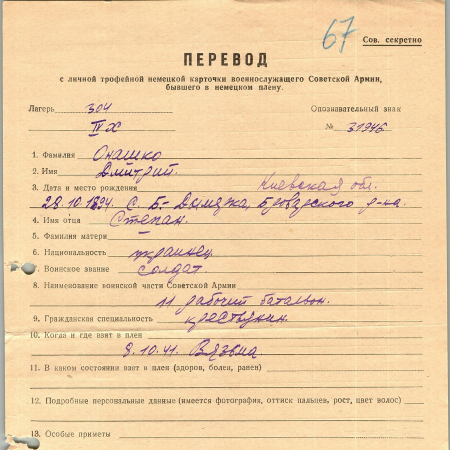 67
Сов. секретно
ПЕРЕВОД
с личной трофейной немецкой карточки военнослужащего Советской Армии,
бывшего в немецком плену.
Лагерь 304 Опознавательный знак
IV X № 31946
1. Фамилия Онашко
2. Имя Дмитрий.
3. Дата и место рождения Киевская обл.
29.10.1894. С. Б-Дымерка, Броварского р-на.
4. Имя отца Степан.
5. Фамилия матери —
6. Национальность украинец.
7. Воинское звание солдат
8. Наименование воинской части Советской Армии
11 рабочий батальон.
9. Гражданская специальность крестьянин.
10. Когда и где взят в плен
8.10.41. Вязьма
11. В каком состоянии взят в плен (здоров, болен, ранен)
12. Подробные персональные данные (имеется фотография, оттиск пальцев, рост, цвет волос)
13. Особые приметы